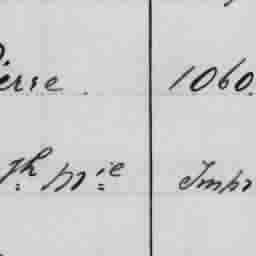 ierre. 1060
gh Mie Impr